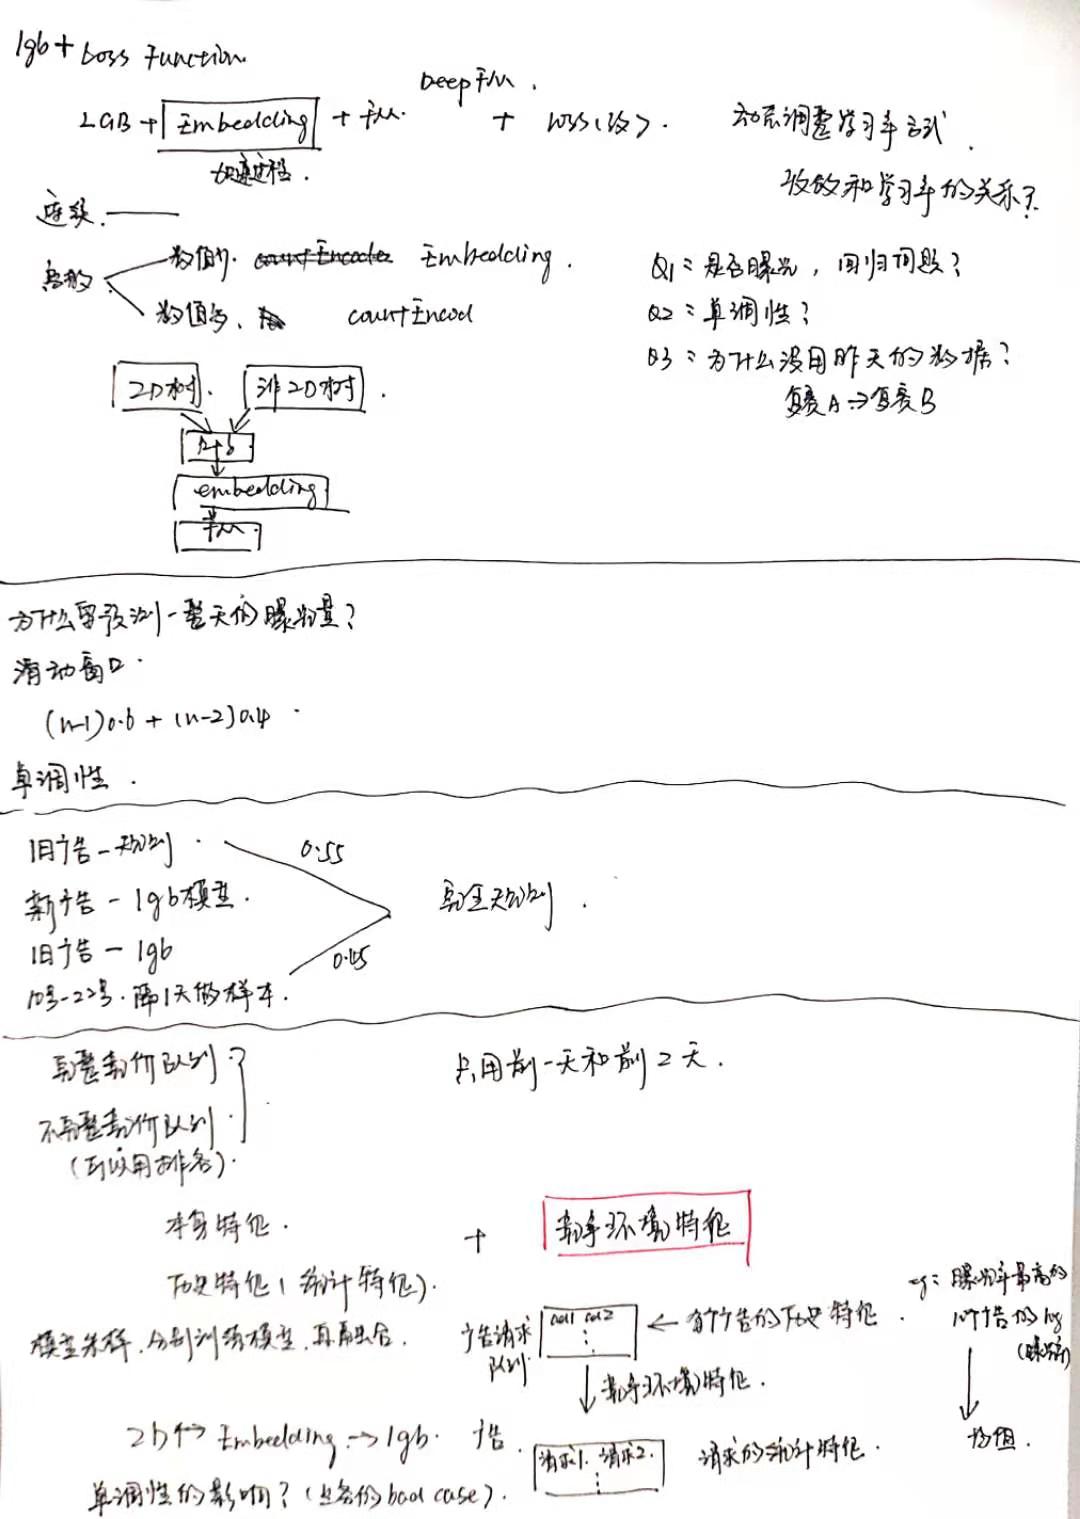 lgb + Loss Function.
DeepFM.
LGB + Embedding + FM. + loss(改).
加速过程.
动态调整学习率方式.
收敛和学习率的关系?
连续.
离散
数值少. countEncode Embedding.
数值多、 countEncod
Q1: 是否曝光, 回归问题?
Q2: 单调性?
Q3: 为什么没用昨天的数据?
复赛A → 复赛B
ID树. 非ID树.
embedding
FM.
为什么要预测一整天的曝光量?
滑动窗口.
(n-1)0.6 + (n-2)0.4.
单调性.
旧广告 - 规则. 0.55
新广告 - lgb模型. 完全规则.
旧广告 - lgb
0.45
10号-22号. 隔1天的样本.
完整竞价队列
不完整竞价队列
(可以用排名).
只用前一天和前2天.
本身特征. + 竞争环境特征
历史特征(统计特征).
eg: 曝光率最高的
10个广告的log
(曝光率)
均值.
模型采样.分别训练模型.再融合.
广告请求队列 ad1 ad2 ← 各个广告的历史特征.
竞争环境特征.
ID ↔ Embedding → lgb. 广告. 请求1. 请求2. 请求的统计特征.
单调性的影响? (业务的bad case).